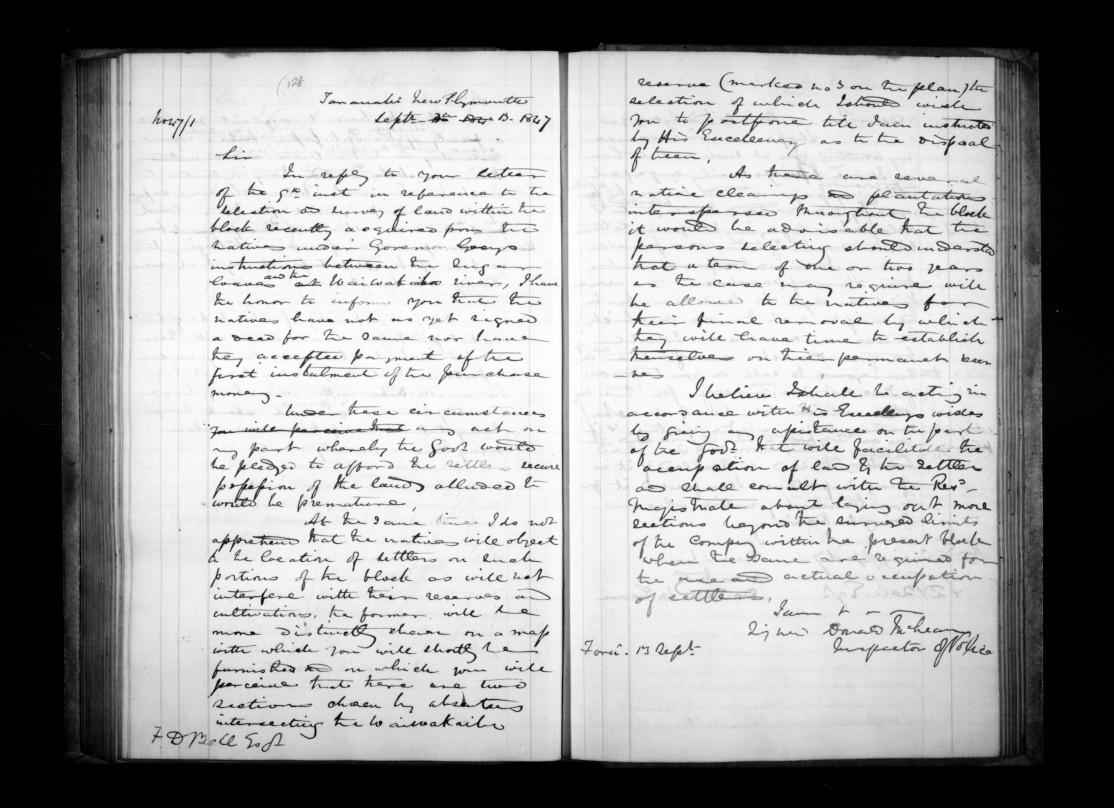 128
Taranaki New Plymouth
No 47/1
Septr 13. 1847
Sir
In reply to your letter
of the 9th inst in reference to the
selection & survey of land within the
block recently acquired from the
natives under Governor Greys
instructions between the Sugar
loaves and the Waiwakaiho river, I have
the honor to inform you that the
natives have not as yet signed
a deed for the same nor have
they accepted payment of the
first instalment of the purchase
money.
Under these circumstances
you will perceive that any act on
my part whereby the Govt would
be pledged to afford the settlers secure
possession of the lands alluded to
would be premature,
At the same time I do not
apprehend that the natives will object
to the location of settlers on such
portions of the block as will not
interfere with their reserves and
cultivations, the former will be
more distinctly shewn on a map
with which you will shortly be
furnished & on which you will
perceive that there are two
sections chosen by absentees
intersecting the Waiwakaiho
F. D Bell Esqr
reserve (marked No 3 on the plan) the
selection of which I should wish
you to postpone till I am instructed
by His Excellency as to the disposal
of them,
As there are several
native clearings & plantations
interspersed throughout the block
it would be advisable that the
persons selecting should understand
that a term of one or two years
as the case may require will
be allowed to the natives for
their final removal by which
they will have time to establish
themselves on their permanent reser
-ves
I believe I shall be acting in
accordance with His Excellencys wishes
by giving any assistance on the part
of the Govt that will facilitate the
occupation of land by the settlers
and shall consult with the Rest
Magistrate about laying out more
sections beyond the surveyed limits
of the Company within the present block
when the same are required for
the use and actual occupation
of settlers.
I am &
Signed Donald McLean
Inspector of Police
Forwd. 13 Septr